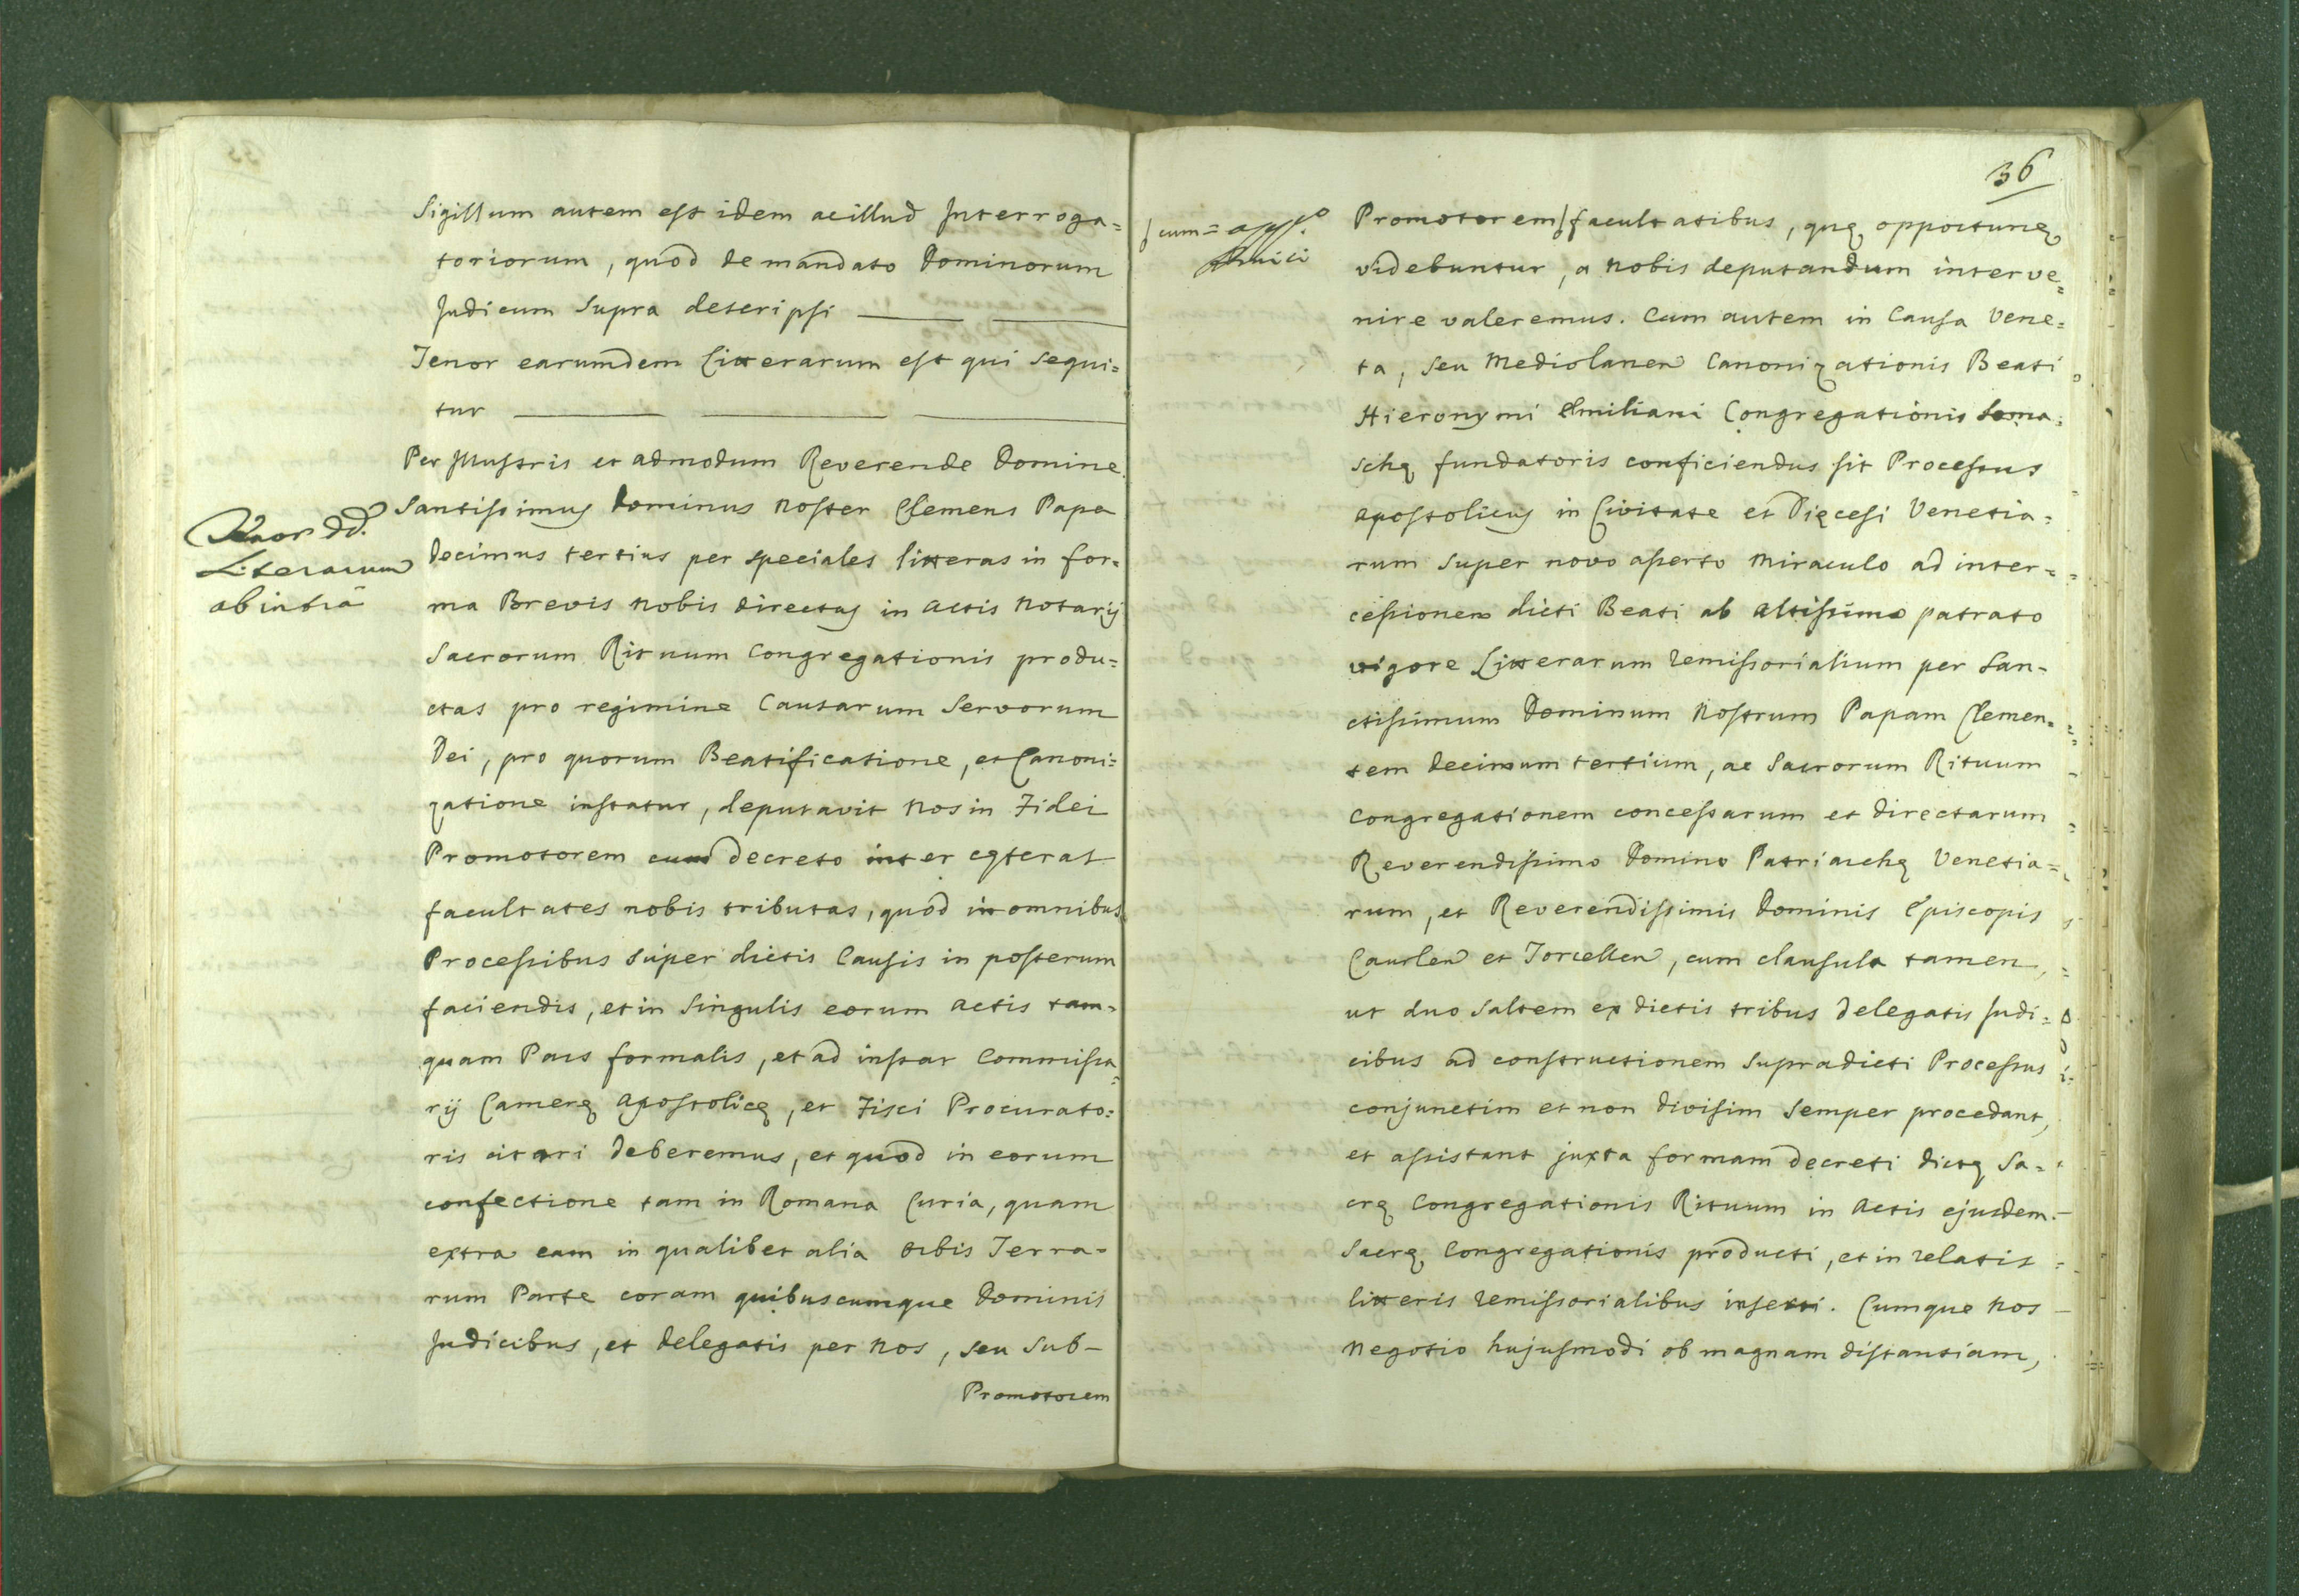 Sigillum autem est idem ac illud Interroga=
toriorum, quod de mandato Dominorum
Judicum supra descripsi
Tenor earumdem Litterarum est qui sequi=
tur
Per Illustris et admodum Reverende Domine
Tenor dd.
Literarum
ab intra
Santissimus Dominus noster Clemens Papa
Decimus tertius per speciales litteras in for=
ma Brevis nobis directas in actis Notarij
Sacrorum Rituum Congregationis produ=
ctas pro regimine Causarum Servorum
Dei, pro quorum Beatificatione, et Canoni=
zatione instatur, deputavit nos in Fidei
Promotorem cum decreto inter cęteras
facultates nobis tributas, quod in omnibus
Processibus super dictis Causis in posterum
faciendis, et in singulis eorum actis tam=
quam Pars formalis, et ad instar Commissa=
rij Camerę Apostolicę, et Fisci Procurato=
ris citari deberemus, et quod in eorum
confectione tam in Romana Curia, quam
extra eam in qualibet alia Orbis Terra=
rum Parte coram quibuscumque Dominis
Judicibus, et delegatis per nos, seu Sub-
Promotorem
36
cum=
Promotorem facultatibus, quę opportunę
videbuntur, a nobis deputandum interve=
nire valeremus. Cum autem in Causa Vene=
ta, seu Mediolanen Canonizationis Beati
Hieronymi Emiliani Congregationis Soma=
schę fundatoris conficiendus sit Processus
Apostolicus in Civitate et Dięcesi Venetia=
rum super novo asserto miraculo ad inter=
cessionem dicti Beati ab altissimo patrato
vigore Litterarum remissorialium per San=
ctissimum Dominum Nostrum Papam Clemen=
tem decimum tertium, ac Sacrorum Rituum
Congregationem concessarum et directarum
Reverendissimo Domino Patriarchę Venetia=
rum, et Reverendissimis Dominis Episcopis
Caurlen et Torcellen, cum clausula tamen,
ut duo saltem ex dictis tribus delegatis Judi=
cibus ad constructionem supradicti Processus
conjunctim et non divisim semper procedant,
et assistant juxta formam decreti dictę Sa=
crę Congregationis Rituum in actis ejusdem
Sacrę Congregationis producti, et in relatis
litteris remissorialibus inserti. Cumque nos
negotio hujusmodi ob magnam distantiam,